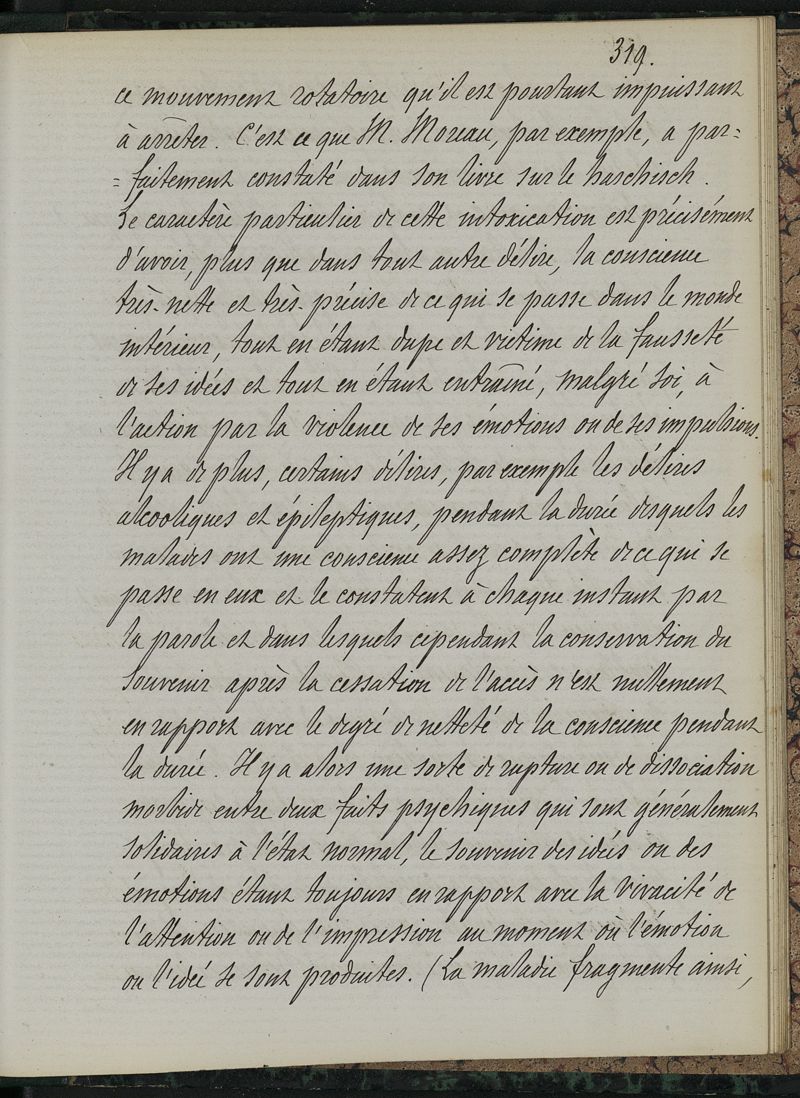 319.
ce mouvement rotatoire qu'il est pourtant impuissant
à arrêter. C'est ce que M. Moreau, par exemple, a par=
=faitement constaté dans son livre sur le haschisch.
Le caractère particulier de cette intoxication est précisément
d'avoir, plus que dans tout autre délire, la conscience
très-nette et très-précise de ce qui se passe dans le monde
intérieur, tout en étant dupe et victime de la fausseté
de ses idées et tout en étant entraîné, malgré soi, à
l'action par la violence de ses émotions ou de ses impulsions.
Il y a de plus, certains délires, par exemple les délires
alcooliques et épileptiques, pendant la durée desquels les
malades ont une conscience assez complète de ce qui se
passe en eux et le constatent à chaque instant par
la parole et dans lesquels cependant la conservation du
souvenir après la cessation de l'accès n'est nullement
en rapport avec le degré de netteté de la conscience pendant
la durée. Il y a alors une sorte de rupture ou de dissociation
morbide entre deux faits psychiques qui sont généralement
solidaires à l'état normal, le souvenir des idées ou des
émotions étant toujours en rapport avec la vivacité de
l'attention ou de l'impression au moment où l'émotion
ou l'idée se sont produites. (La maladie fragmente ainsi,